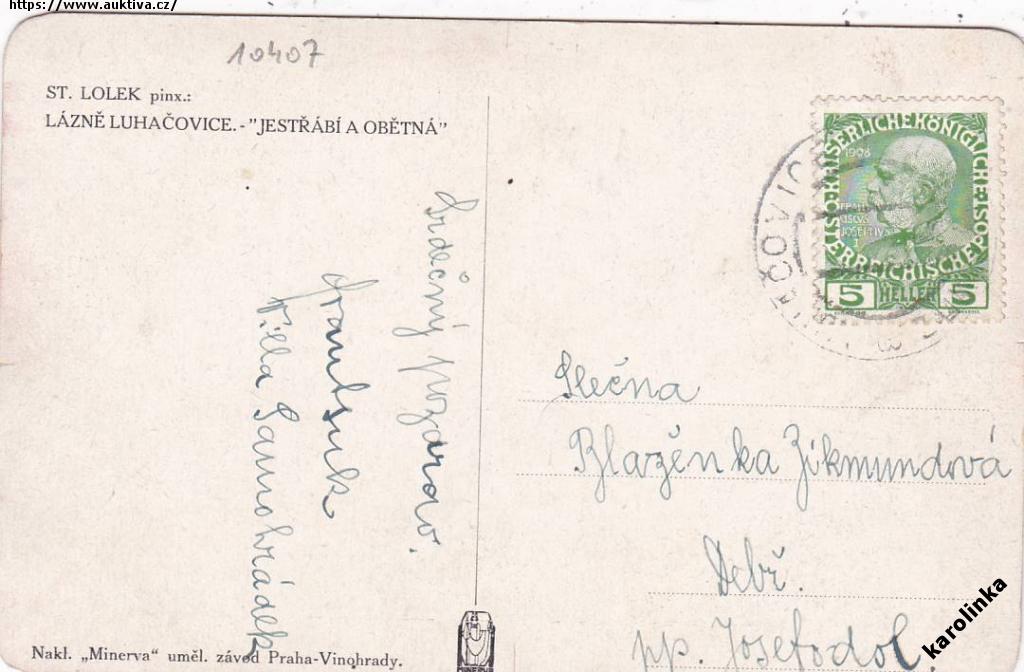 https://www.auktiva.cz/
10407
ST. LOLEK pinx.:
LÁZNĚ LUHAČOVICE.-"JESTŘÁBÍ A OBĚTNÁ"
Srdečný pozdrav.
Villa Samohrádek
KAISERLICHE KÖNIGLICHE
ÖSTERREICHISCHE POST
1908
5 HELLER 5
Slečna
Blaženka Zikmundová
Debř.
pp. Josefodol
karolinka
Nakl. „Minerva" uměl. závod Praha-Vinohrady.
MINERVA